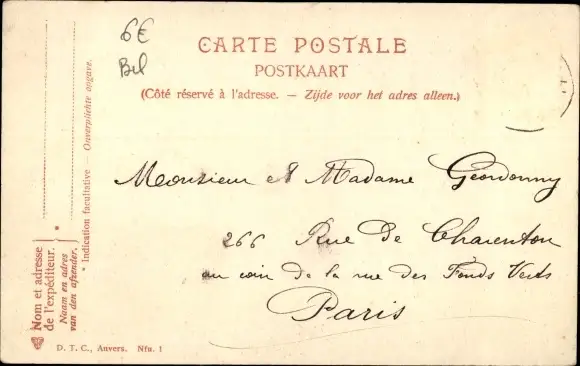 6€
Bel
CARTE POSTALE
POSTKAART
(Côté réservé à l'adresse. — Zijde voor het adres alleen.)
Monsieur et Madame Geordonny
266 Rue De Charenton
au coin de la rue des Fonds Verts
Paris
* Nom et adresse de l'expéditeur.
Naam en adres van den afzender.
* Indication facultative — Onverplichte opgave.
D. T. C., Anvers. Nfu. 1